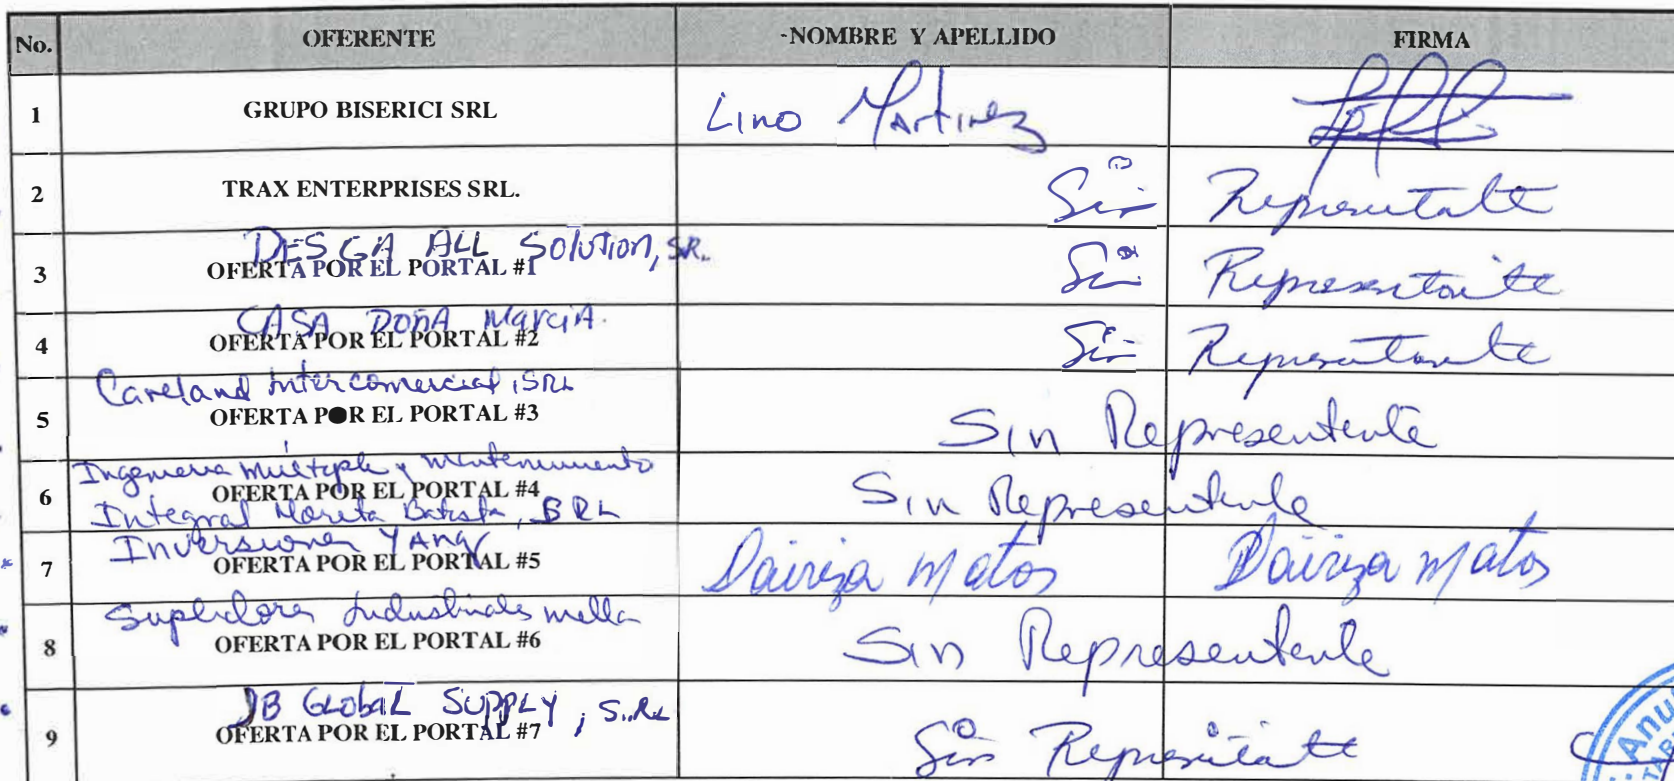 No. OFERENTE -NOMBRE Y APELLIDO FIRMA
1 GRUPO BISERICI SRL Lino Martinez
2 TRAX ENTERPRISES SRL. Sin Representate
DESGA ALL Solution, SR.
3 OFERTA POR EL PORTAL #1 Sin Representante
CASA DOÑA MarciA.
4 OFERTA POR EL PORTAL #2 Sin Representante
Careland intercomercial, SRL
5 OFERTA POR EL PORTAL #3 Sin Representente
Ingenieria multiple y mantenimiento
6 OFERTA POR EL PORTAL #4 Sin Representente
Integral Moreta Batista, SRL
Inversiones YAng
7 OFERTA POR EL PORTAL #5 Dairiza Matos Dairiza Matos
Suplidores Industriales mella
8 OFERTA POR EL PORTAL #6 Sin Representente
JB GLobaL SUPPLY, S.RL
9 OFERTA POR EL PORTAL #7 Sin Representate